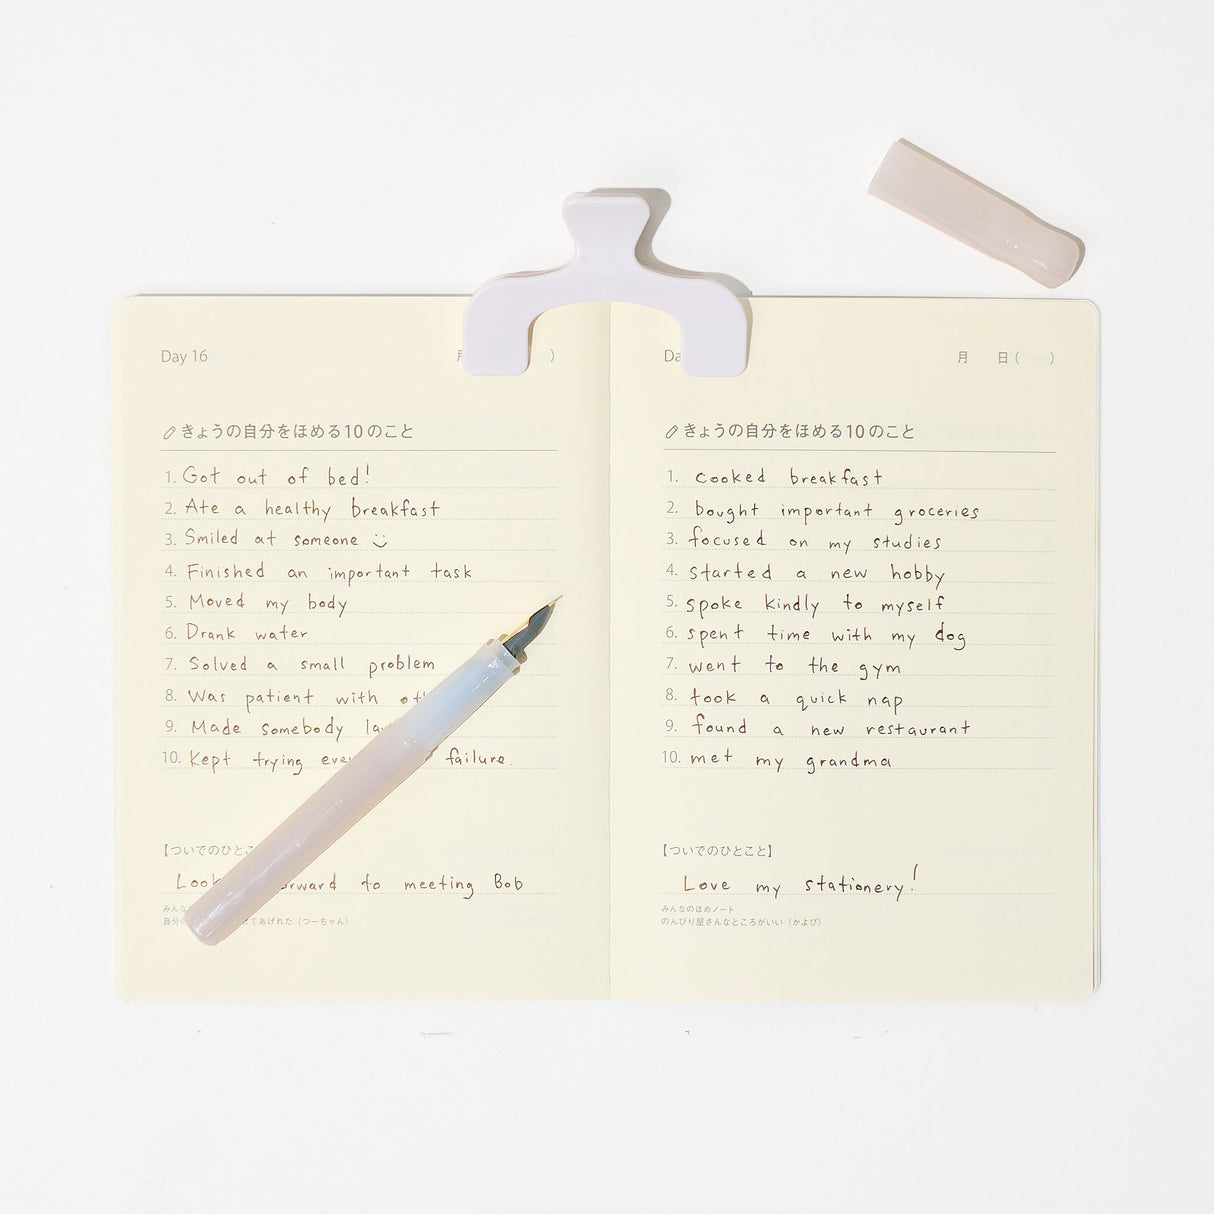 Day 16
)
きょうの自分をほめる10のこと
1. Got out of bed!
2. Ate a healthy breakfast
3. Smiled at someone
4. Finished an important task
5. Moved my body
6. Drank water
7. Solved a small problem
8. Was patient with
9. Made somebody
10. Kept trying failure.
【ついでのひとこ
to meeting Bob
みんな
自分 てあげれた（つーちゃん）
月 日 ( )
きょうの自分をほめる10のこと
1. cooked breakfast
2. bought important groceries
3. focused on my studies
4. started a new hobby
5. spoke kindly to myself
6. spent time with my dog
7. went to the gym
8. took a quick nap
9. found a new restaurant
10. met my grandma
【ついでのひとこと】
Love my stationery!
みんなのほめノート
のんびり屋さんなところがいい（かよぴ）